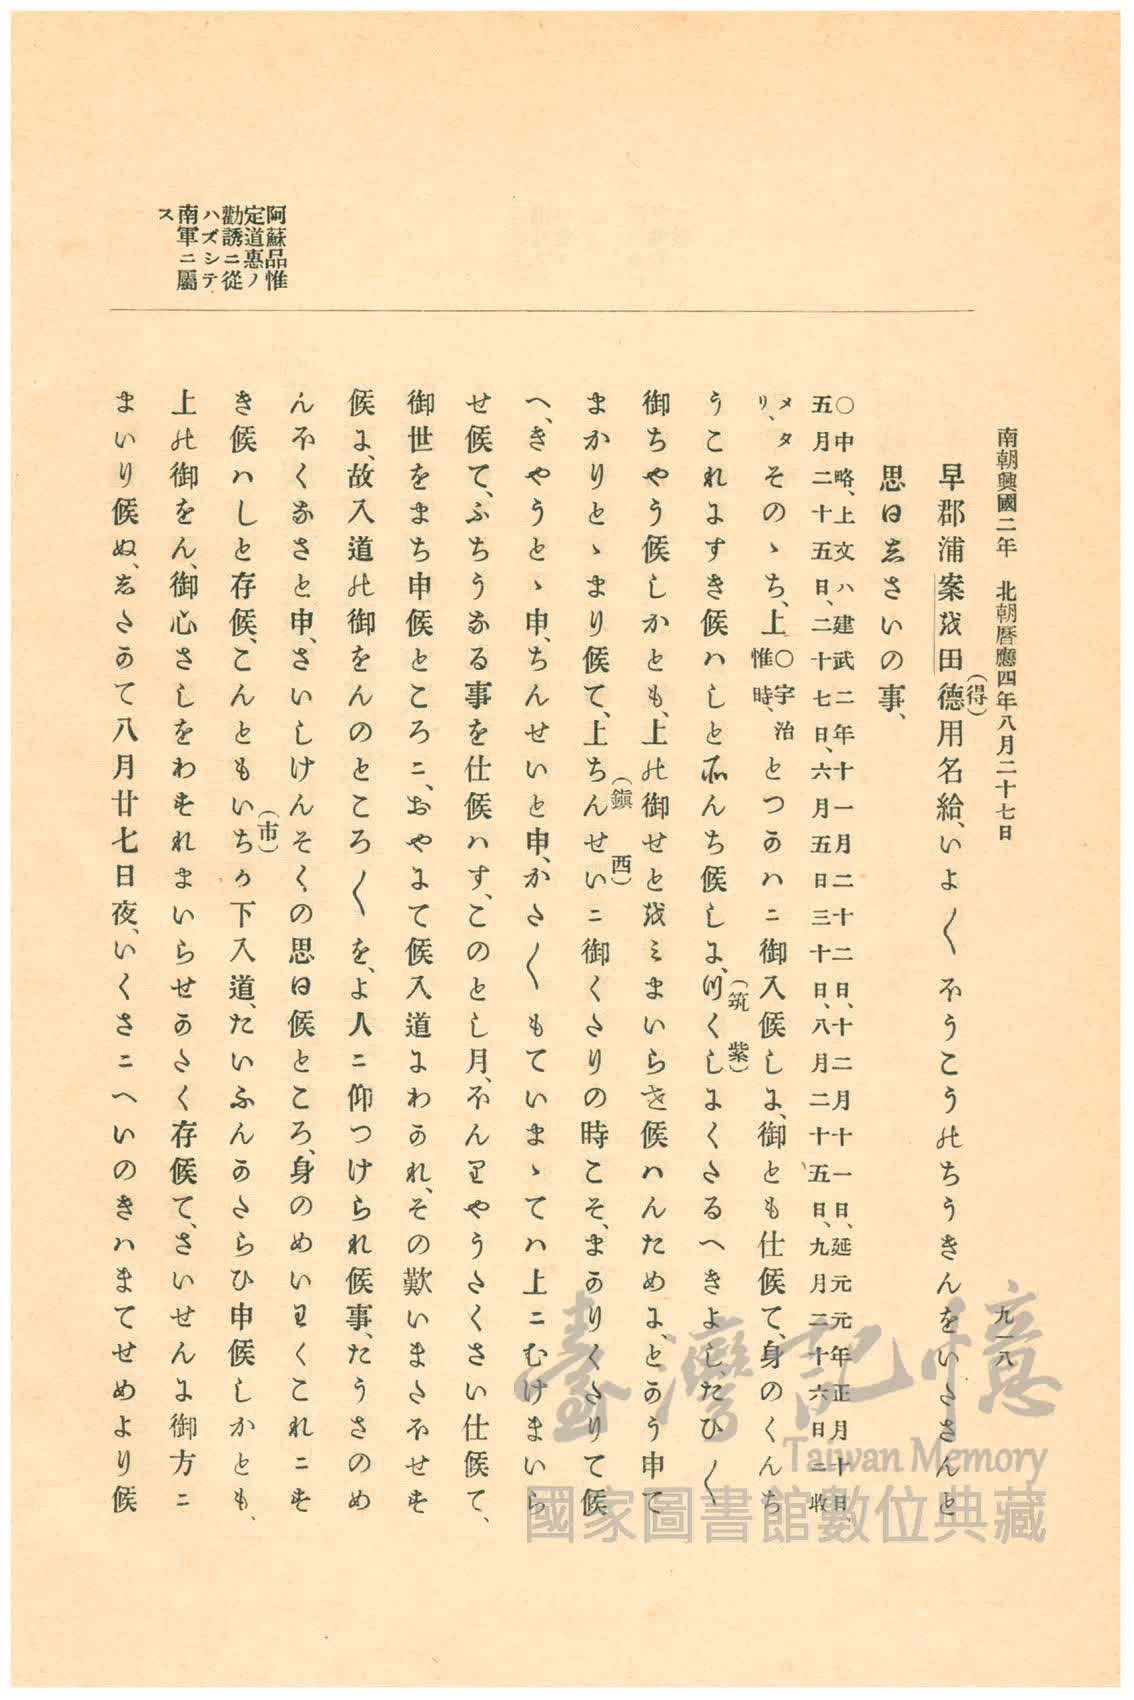 南朝興國二年 北朝曆應四年八月二十七日 九一八
早郡浦案越田德(得)用名給、いよ〱ほうこうのちうきんをいたさんと
思日しさいの事、
〇中略、上文ハ建武二年十一月二十二日、十二月十一日、延元元年正月十日、
五月二十五日、二十七日、六月五日三十日、八月二十五日、九月二十六日ニ收
メタリ、そのゝち、上〇宇治惟時、とつかハニ御入候しに、御とも仕候て、身のくんち
うこれにすき候ハしとそんち候しに、つくし(筑紫)にくたるへきよし、たひ〱
御ちやう候しかとも、上の御せとをミまいらせ候ハんために、とかう申て
まかりとゝまり候て、上ちんせい(鎭西)ニ御くたりの時こそ、まかりくたりて候
へ、きやうとゝ申、ちんせいと申、かた〱もていまゝてハ上ニむけまいら
せ候て、ふちうなる事を仕候ハす、このとし月、ほんりやうたくさい仕候て、
御世をまち申候ところニ、おやにて候入道にわかれ、その歎いまたほせす
候に、故入道の御をんのところ〱を、よ人ニ仰つけられ候事、たうさのめ
んほくなさと申、さいしけんそくの思日候ところ、身のめいりくこれニす
き候ハしと存候、こんともいち(市)か下入道、たいふんかたらひ申候しかとも、
上の御をん、御心さしをわすれまいらせかたく存候て、さいせんに御方ニ
まいり候ぬ、したかて八月廿七日夜、いくさニへいのきハまてせめより候
阿蘇品惟
定道惠ノ
勸誘ニ從
ハズシテ
南軍ニ屬
ス
臺灣記憶
Taiwan Memory
國家圖書館數位典藏